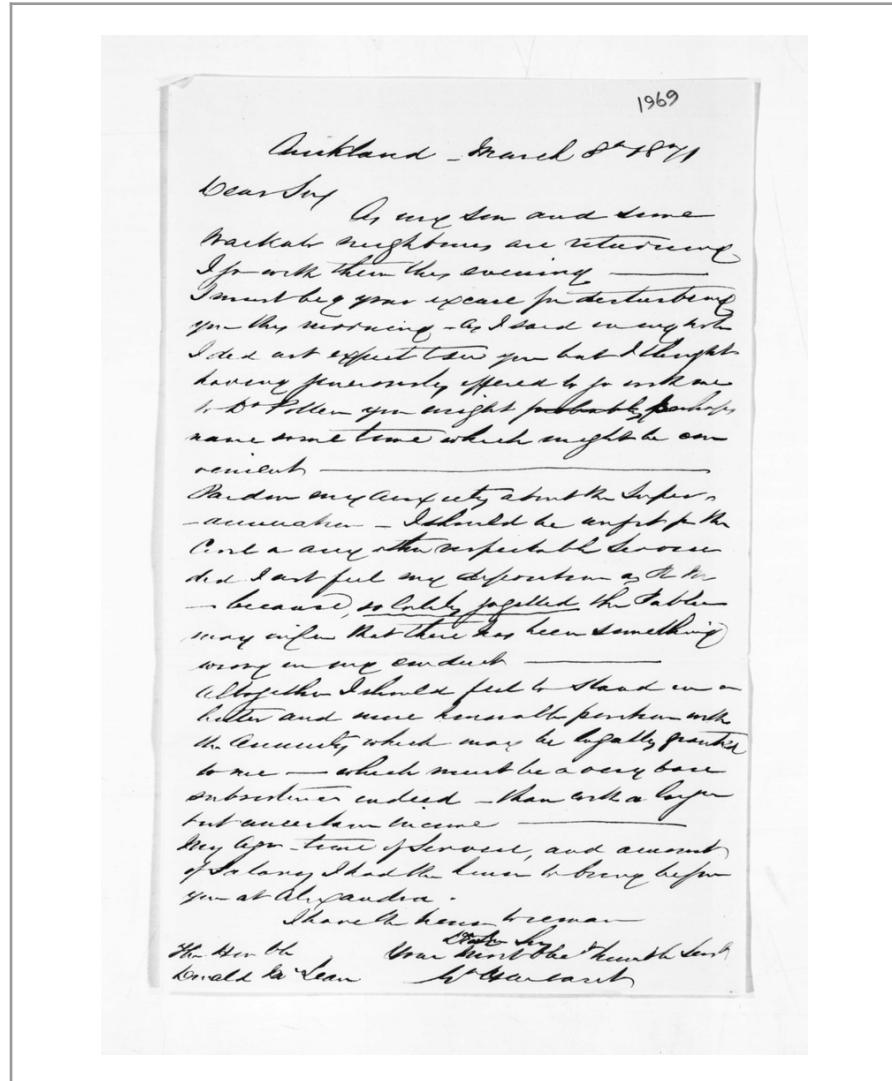 1969
Auckland - March 8th 1871
Dear Sir
As my son and some
Waikato neighbours are returning
I go with them this evening —
I must beg your excuse for disturbing
you this morning - as I said in my note
I did not expect to see you but I thought
having generously offered to go with me
to Dr Pollen you might probably perhaps
name some time which might be con
venient —
Pardon my anxiety about the Super-
-annuation - I should be unfit for the
Civil or any other respectable Service
did I not feel my deposition as R M
- because, so lately gazetted, the Public
may infer that there has been something
wrong in my conduct —
Altogether I should feel to stand in a
better and more honorable position with
the annuity which may be legally granted
to me — which must be a very bare
subsistence indeed - than with a larger
but uncertain income —
My age - time of Service, and amount
of Salary I had the honor to bring before
you at Alexandra.
I have the honor to remain
Dear Sir
Your most obedt humble Servt
The Honble
Donald McLean
Wm Harsant